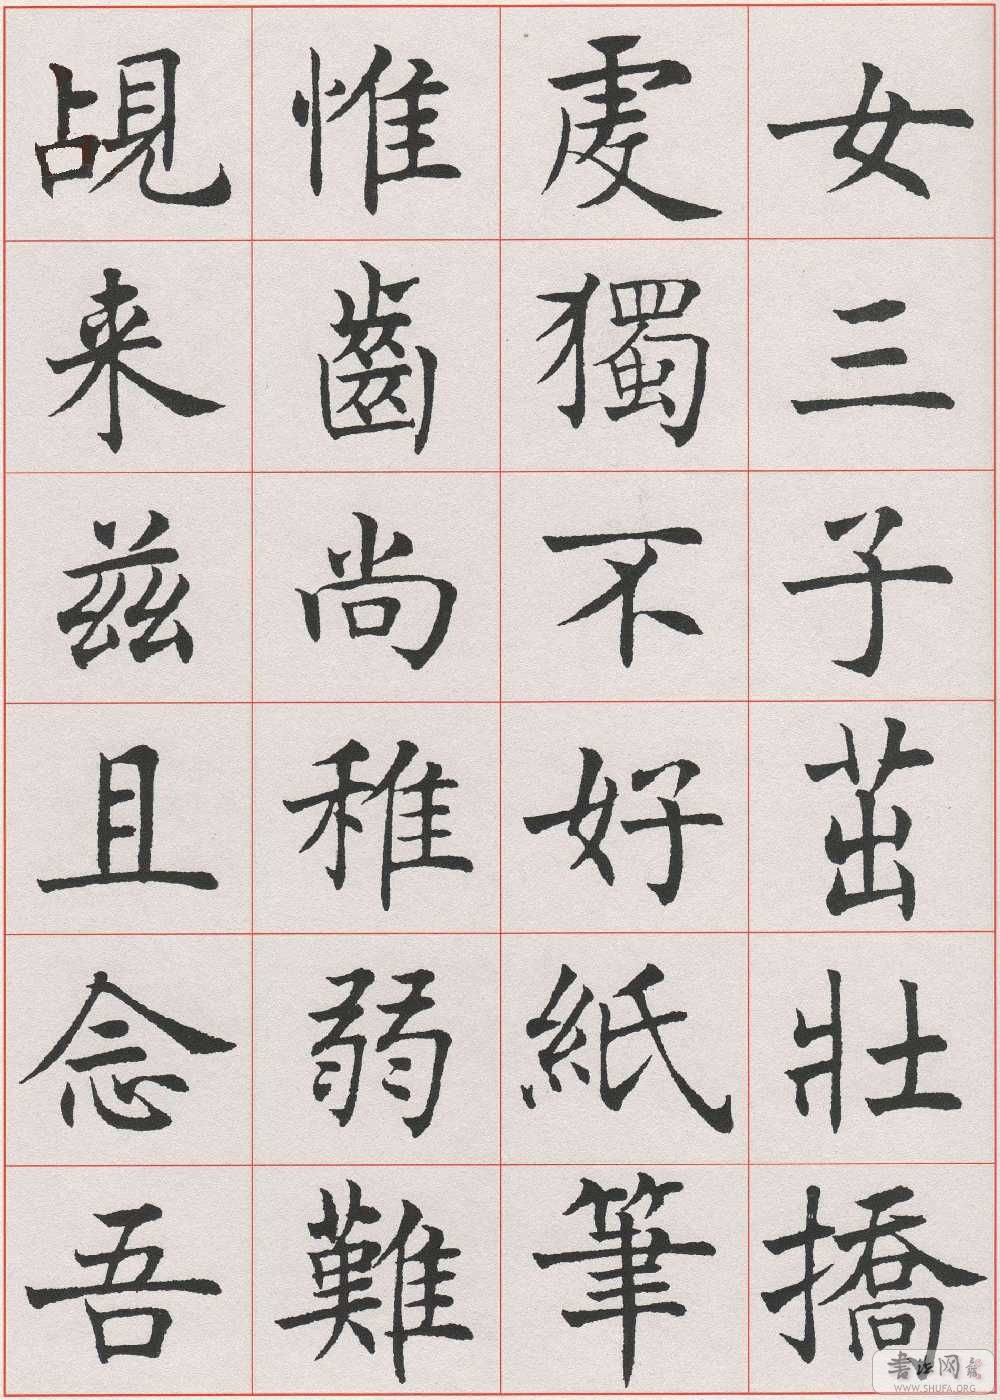 女三子茁壮撟
虔獨不好紙筆
惟齒尚稚弱難
覘来兹且念吾
書法网
WWW.SHUFA.ORG